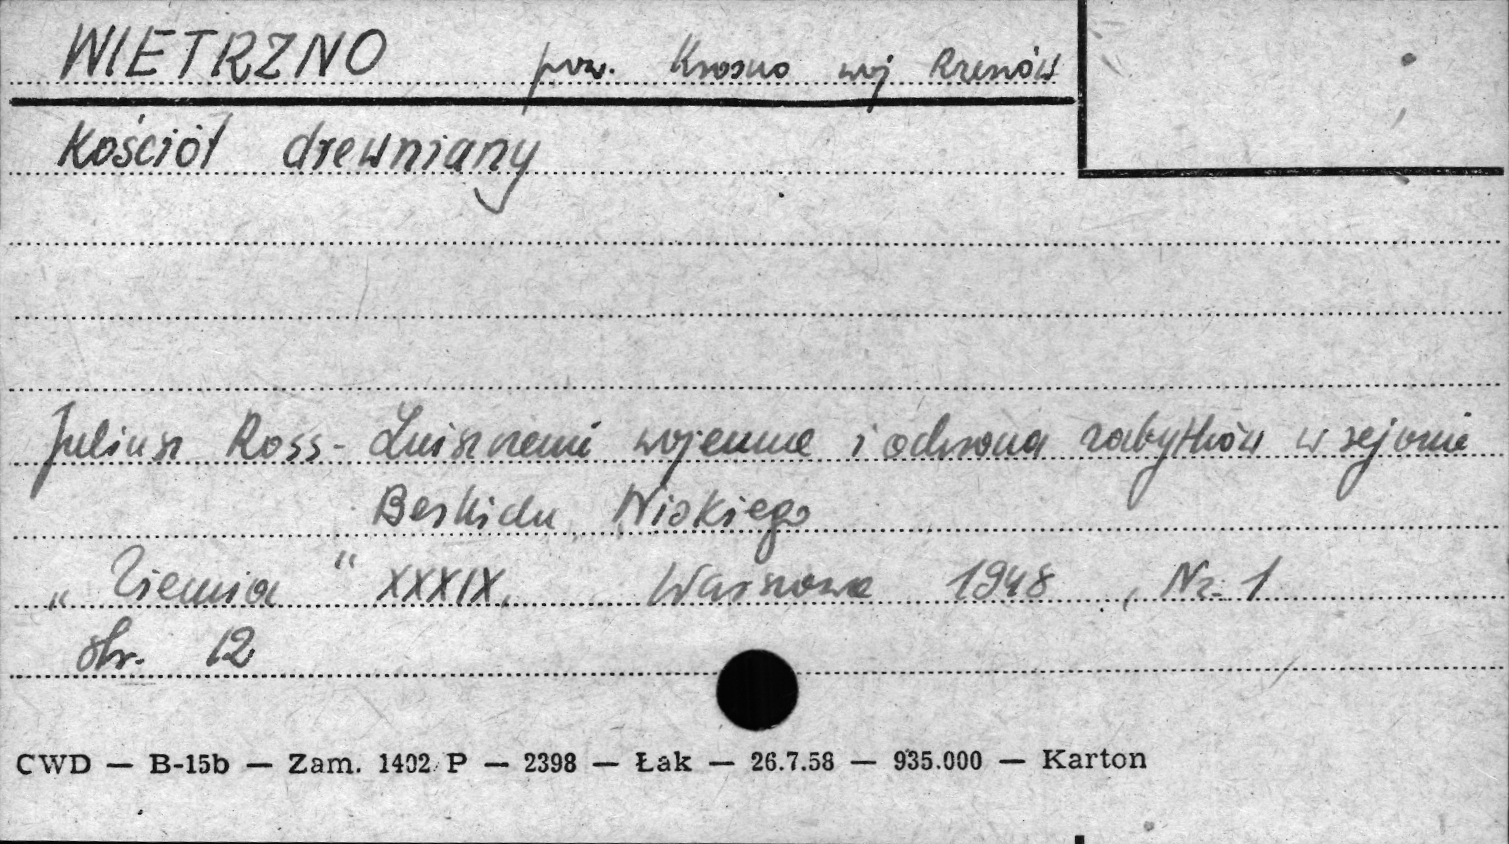 WIETRZNO pow. Krosno woj Rzeszów
Kościół drewniany
Juliusz Ross - Zniszczenia wojenne i ochrona zabytków w rejonie
Beskidu Niskiego
„Ziemia“ XXXIX, Warszawa 1948, Nr. 1
str. 12
CWD — B-15b — Zam. 1402 P — 2398 — Łak — 26.7.58 — 935.000 — Karton